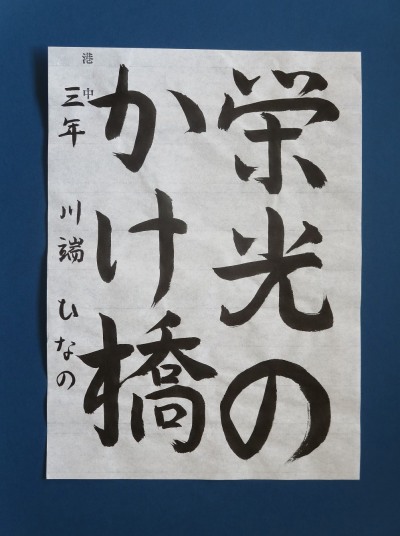 栄光の
かけ橋
港中
三年 川端 ひなの